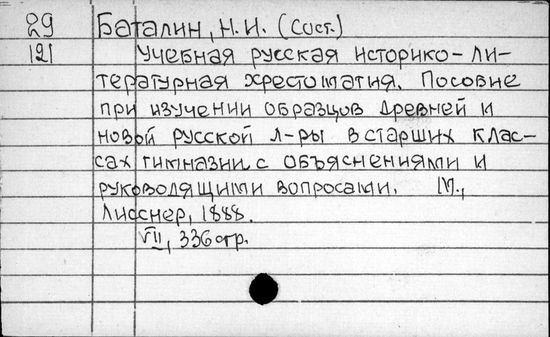 29 Баталин, Н.И. (сост.)
121 Учебная русская историко-ли-
тературная хрестоматия. Пособие
при изучении образцов древней и
новой русской л-ры в старших клас-
сах гимназии с объяснениями и
руководящими вопросами. М.,
Лисснер, 1888.
VII, 336 стр.